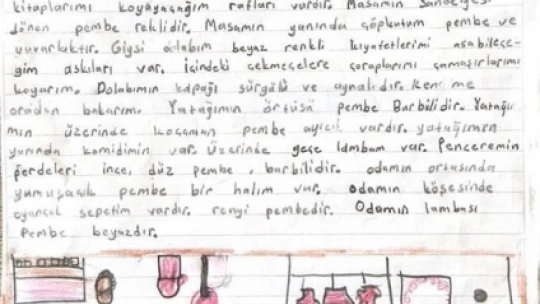 kitaplarımı koyayacağım rafları vardır. Masamın sandelyesi
dönen pembe reklidir. Masamın yanında çöpkutum pembe ve
yuvarlaktır. Giysi dolabım beyaz renkli kıyafetlerimi asabilece-
ğim askıları var. içindeki çekmecelere çoraplarımı çamaşırlarımı
koyarım. Dolabımın kapağı sürgülü ve aynalıdır.
oradan bakarım. Yatağımın örtüsü pembe Barbilidir. Yatağı-
mın üzerinde kocaman pembe ayıcık vardır. yatağımın
yanında komidimin var. Üzerinde gece lambam var. Penceremin
perdeleri ince, düz pembe, barbilidir. odamın ortasında
yumuşacık pembe bir halım var. odamın köşesinde
oyuncak sepetim vardır. rengi pembedir. Odamın lambası
Pembe beyazdır.